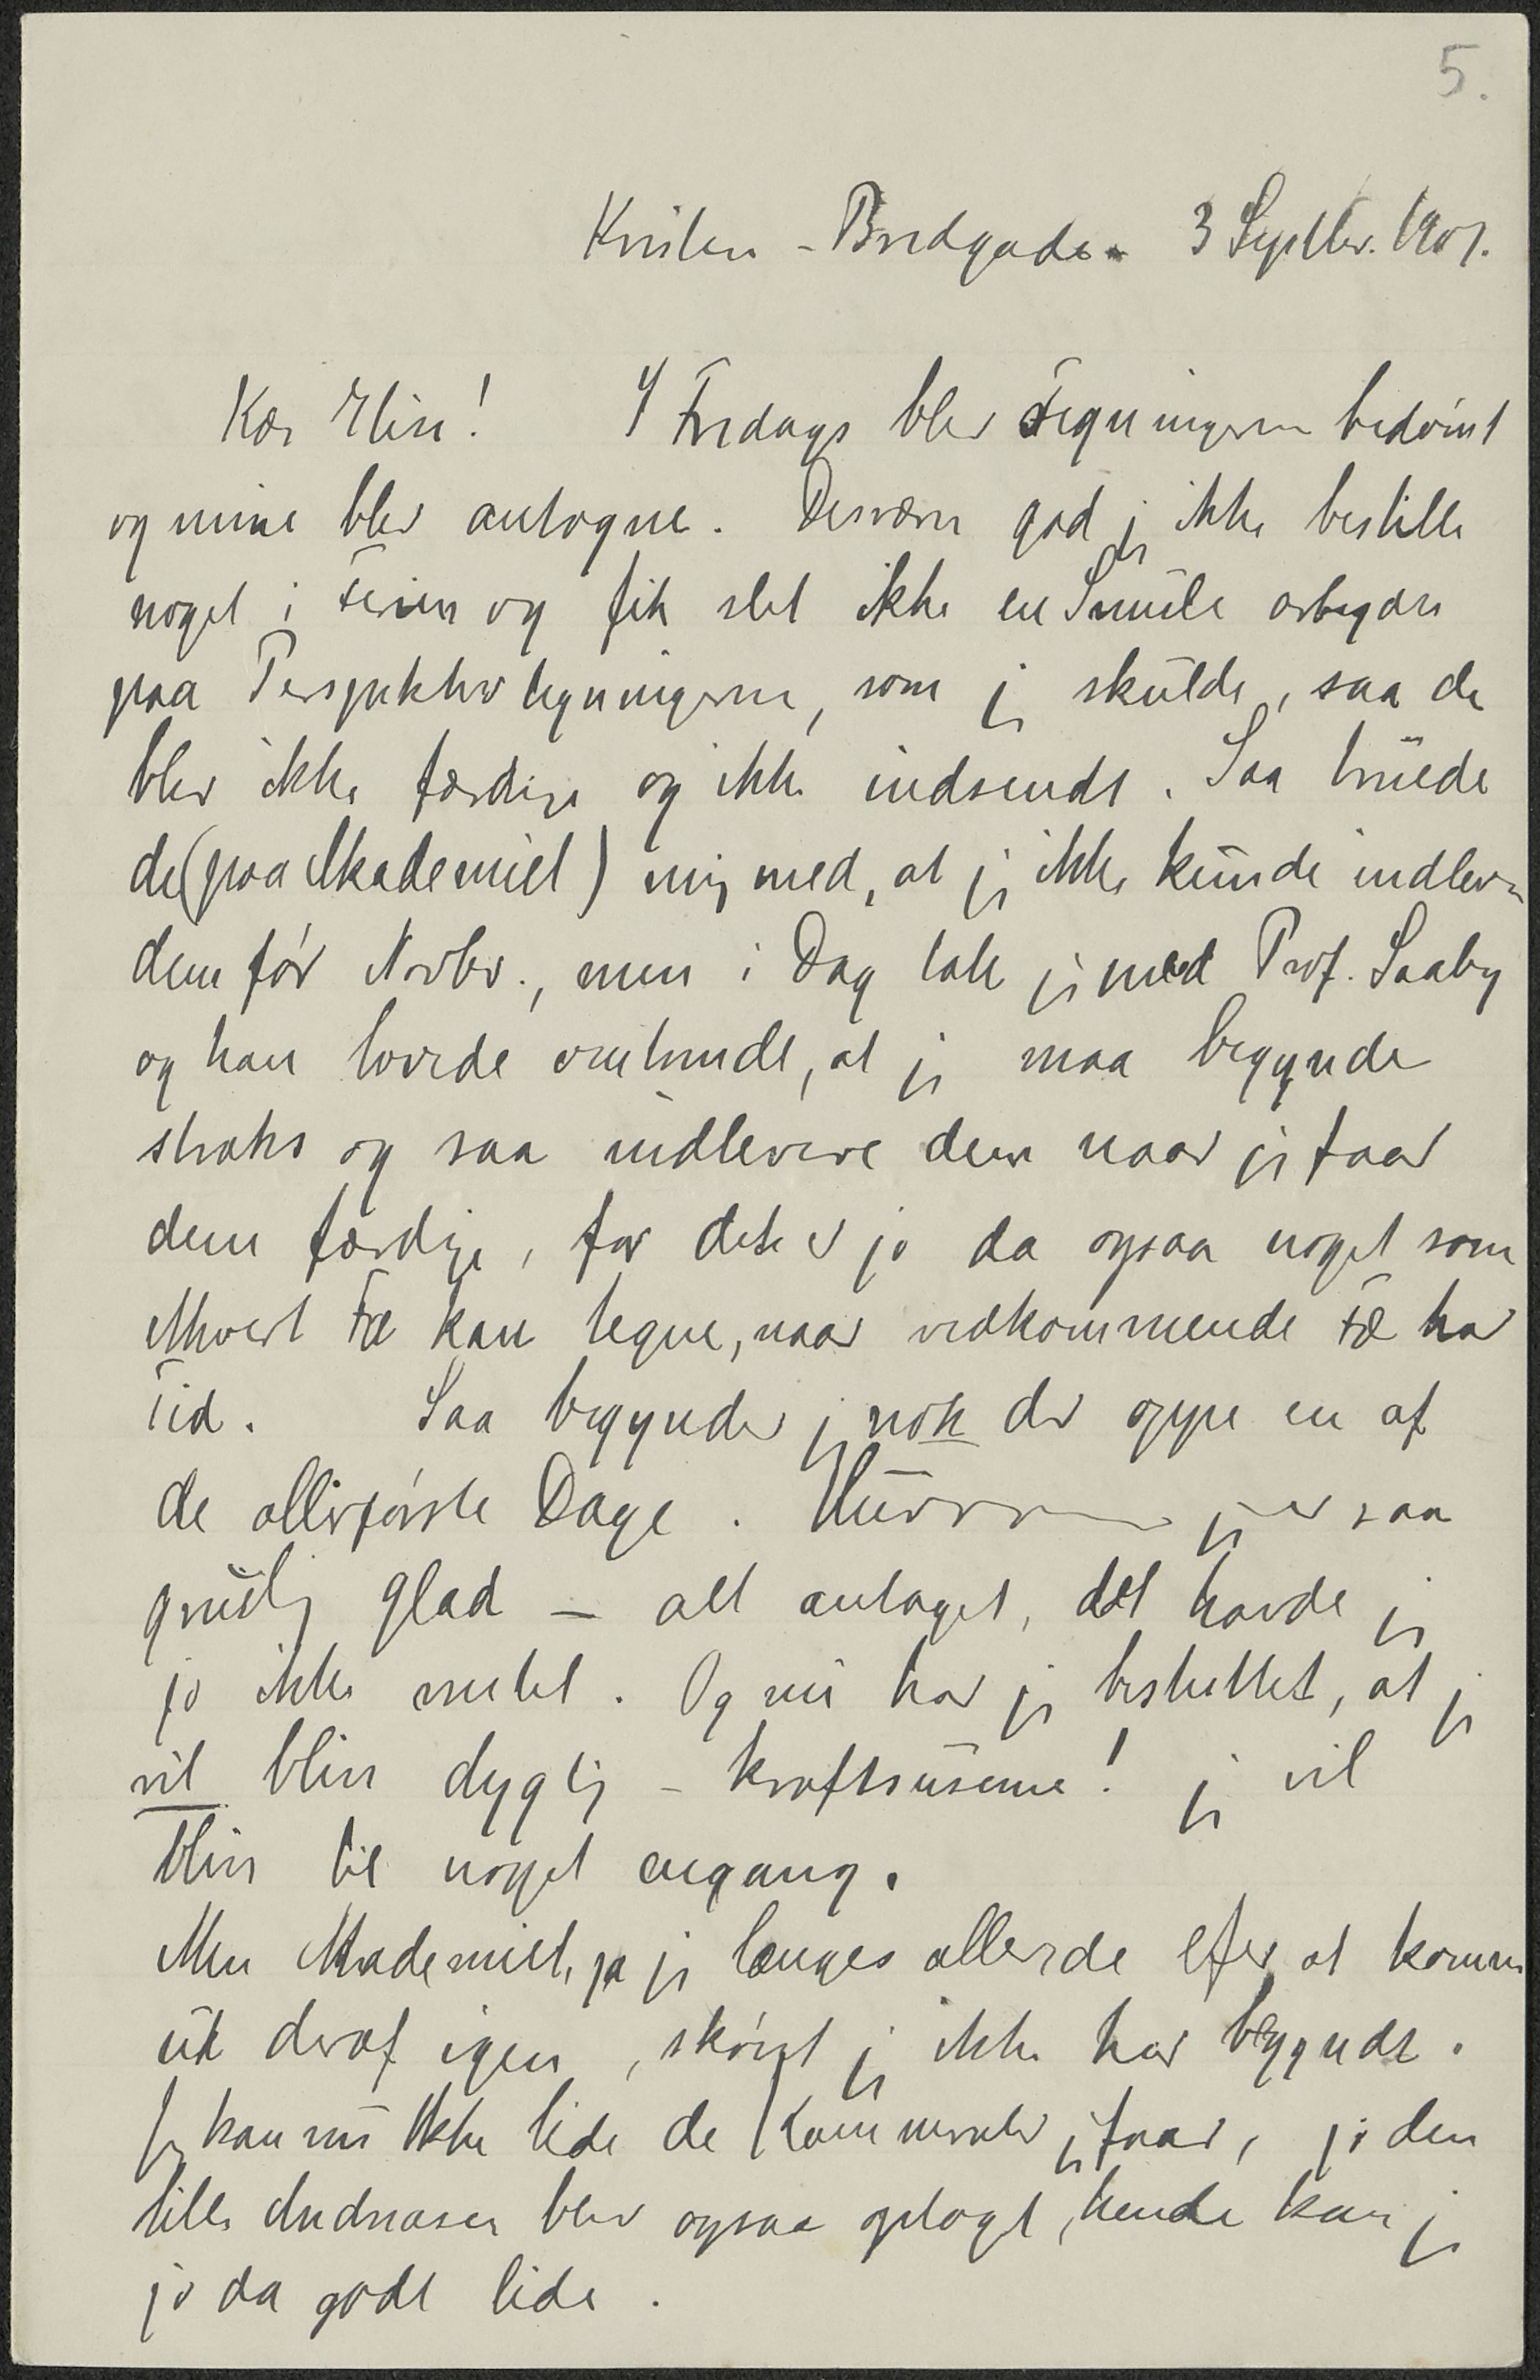 5.
Kvisten - Bredgade. 3 Septbr. 1907.
Kær Elise! I Fredags blev Tegningerne bedømt
og mine blev antagne. Desværre gad jeg ikke bestille
noget i Ferien og fik slet ikke en Smule arbejdet
paa Perspektivtegningerne, som jeg skulde, saa de
blev ikke færdige og ikke indsendt. Saa truede
de (paa Akademiet) mig med, at jeg ikke kunde indlevere
dem før Novbr., men i Dag talte jeg med Prof. Saaby
og han lovede omtrendt, at jeg maa begynde
straks og saa indlevere dem naar jeg faar
dem færdige, for det er jo da ogsaa noget som
ethvert Fæ kan tegne, naar vedkommende Fæ har
Tid. Saa begynder jeg nok der oppe en af
de allerførste Dage. Hurrra jeg er saa
gruelig glad — alt antaget, det havde jeg
jo ikke ventet. Og nu har jeg besluttet, at jeg
vil blive dygtig - kraftsuseme! jeg vil
blive til noget engang.
Men Akademiet, ja jeg længes allerede efter at komme
ud deraf igen, skønt jeg ikke har begyndt.
Jeg kan nu ikke lide de Kammerater jeg faar, jo den
lille Andrasen blev ogsaa optaget, hende kan jeg
jo da godt lide.